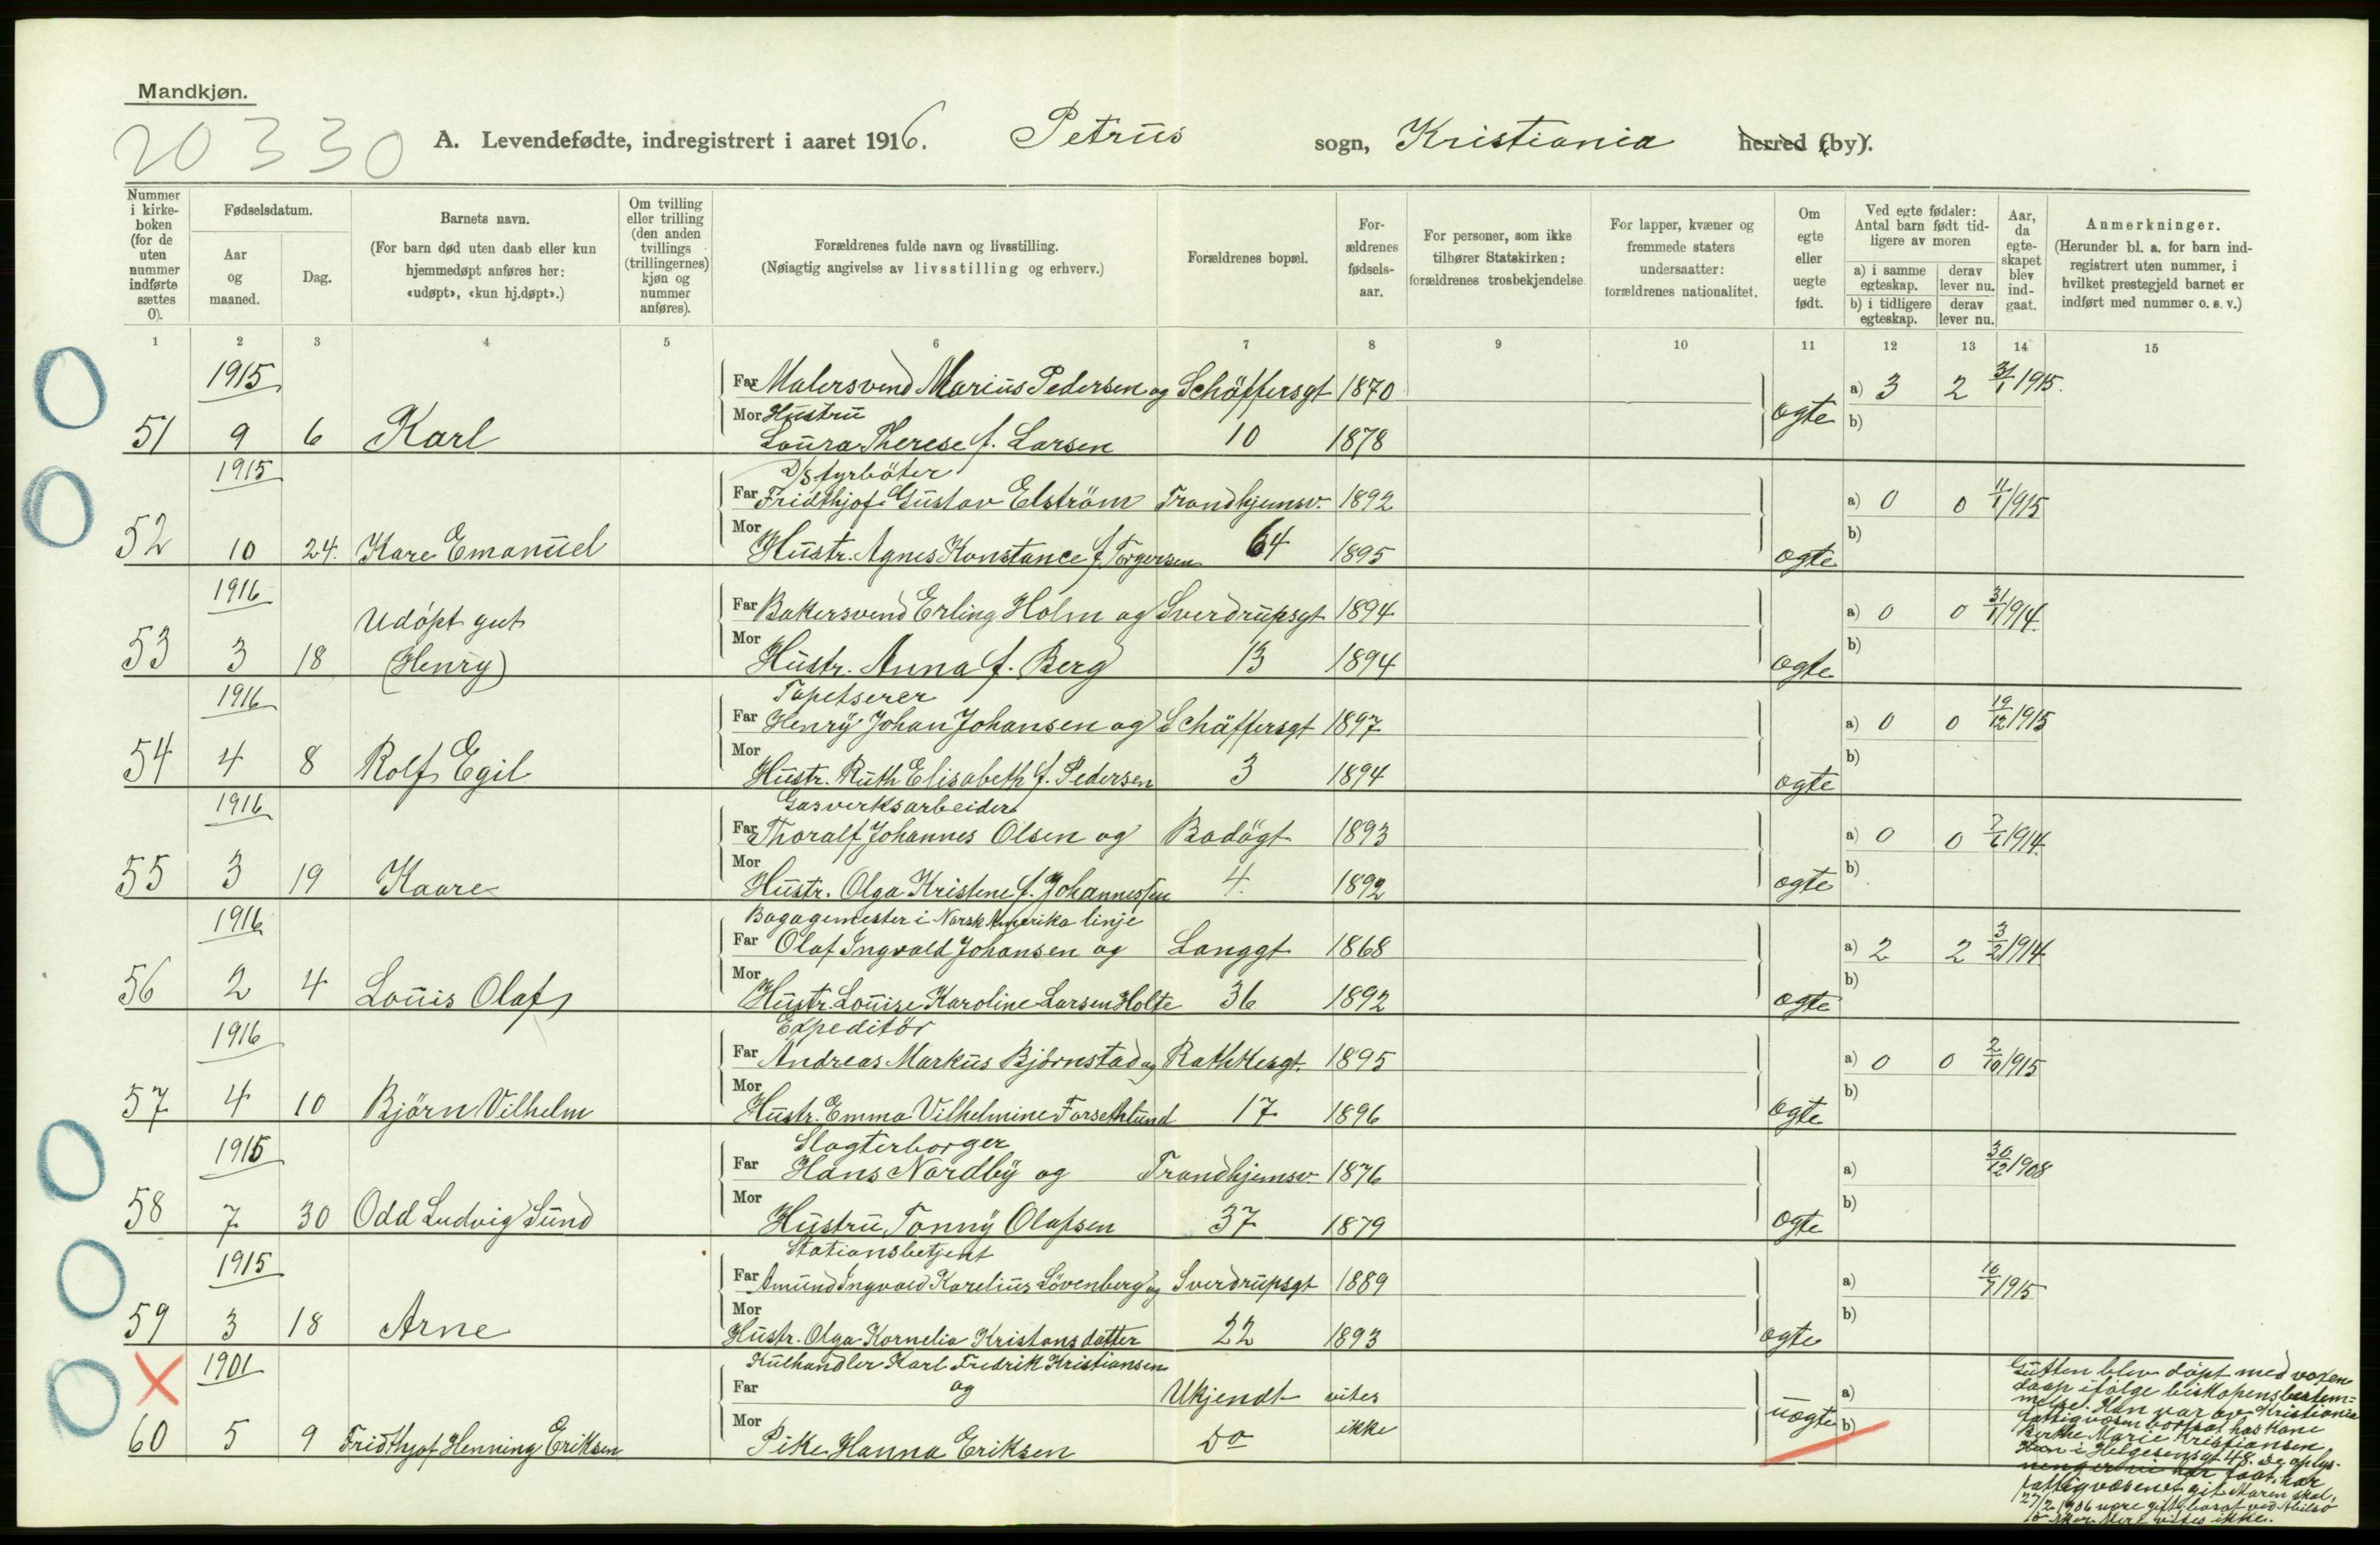 Mandkjøn.
20 330
A. Levendefødte, indregistrert i aaret 1916. Petrus sogn, Kristiania herred (by).
Nummer i kirkeboken (for de uten nummer indførte sættes 0).
Fødselsdatum.
Aar og maaned.
Dag.
Barnets navn.
(For barn død uten daab eller kun hjemmedøpt anføres her: «udøpt», «kun hj.døpt».)
Om tvilling eller trilling (den anden tvillings (trillingernes) kjøn og nummer anføres).
Forældrenes fulde navn og livsstilling.
(Nøiagtig angivelse av livsstilling og erhverv.)
Forældrenes bopæl.
Forældrenes fødselsaar.
For personer, som ikke tilhører Statskirken: forældrenes trosbekjendelse.
For lapper, kvæner og fremmede staters undersaatter: forældrenes nationalitet.
Om egte eller uegte født.
Ved egte fødsler: Antal barn født tidligere av moren
a) i samme egteskap. derav lever nu.
b) i tidligere egteskap. derav lever nu.
Aar, da egteskapet blev indgaat.
Anmerkninger.
(Herunder bl. a. for barn indregistrert uten nummer, i hvilket prestegjeld barnet er indført med nummer o. s. v.)
1 2 3 4 5 6 7 8 9 10 11 12 13 14 15
1915
Far Malersvend Marius Pedersen og Schäffersgt 1870 a) 3 2 31/1 1915.
Mor Hustru
51 9 6 Karl Laura Therese f. Larsen 10 1878 ægte b)
1915
D/S fyrböter
Far Fridthjof Gustav Elström Trondhjemsv. 1892 a) 0 0 11/1 1915
52 10 24. Kare Emanuel Mor Hustr. Agnes Konstance f. Torgersen 64 1895 ægte b)
1916
Far Bakersvend Erling Holm og Sverdrupsgt 1894 a) 0 0 31/1 1914.
Udöpt gut
53 3 18 (Henry) Mor Hustr. Anna f. Berg 13 1894 ægte b)
1916
Tapetserer
Far Henry Johan Johansen og Schäffersgt 1897 a) 0 0 19/12 1915
54 4 8 Rolf Egil Mor Hustr. Ruth Elisabeth f. Pedersen 3 1894 ægte b)
1916
Gasverksarbeider
Far Thoralf Johannes Olsen og Bodögt 1893 a) 0 0 7/6 1914.
55 3 19 Kaare Mor Hustr. Olga Kristene f. Johannessen 4. 1892 ægte b)
1916
Bagagemester i Norsk Amerika linje
Far Olaf Ingvald Johansen og Langgt 1868 a) 2 2 3/2 1914
56 2 4 Louis Olaf Mor Hustr. Louise Karoline Larsen Holte 36 1892 ægte b)
1916
Expeditör
Far Andreas Markus Björnstad og Rathkesgt. 1895 a) 0 0 2/10 1915
57 4 10 Björn Vilhelm Mor Hustr. Emma Vilhelmine Forsethlund 17 1896 ægte b)
1915
Slagterborger
Far Hans Nordby og Trondhjemsv. 1876 a) 30/12 1908
58 7 30 Odd Ludvig Sund Mor Hustru Tonny Olafsen 37 1879 ægte b)
1915
Stationsbetjent
Far Amund Ingvald Karelius Lövenberg og Sverdrupsgt 1889 a) 16/7 1915
59 3 18 Arne Mor Hustr. Olga Kornelia Kristansdatter 22 1893 ægte b)
1901
Kulhandler Karl Fredrik Kristiansen
Far og Ukjendt vites a)
60 5 9 Fridthjof Henning Eriksen Mor Pike Hanna Eriksen do ikke uægte b)
Gutten blev döpt med voxen
daap ifölge biskopens bestem-
melse. Han var av Kristiania
fattigvæsen bortsat hos Kone
Berthe Marie Kristiansen
i Helgesensgt 48. De oplys-
ninger vi har faat, har
fattigvæsenet git. Moren skal
27/2 1906 være gift, bosat ved
Aker. Mere vites ikke.